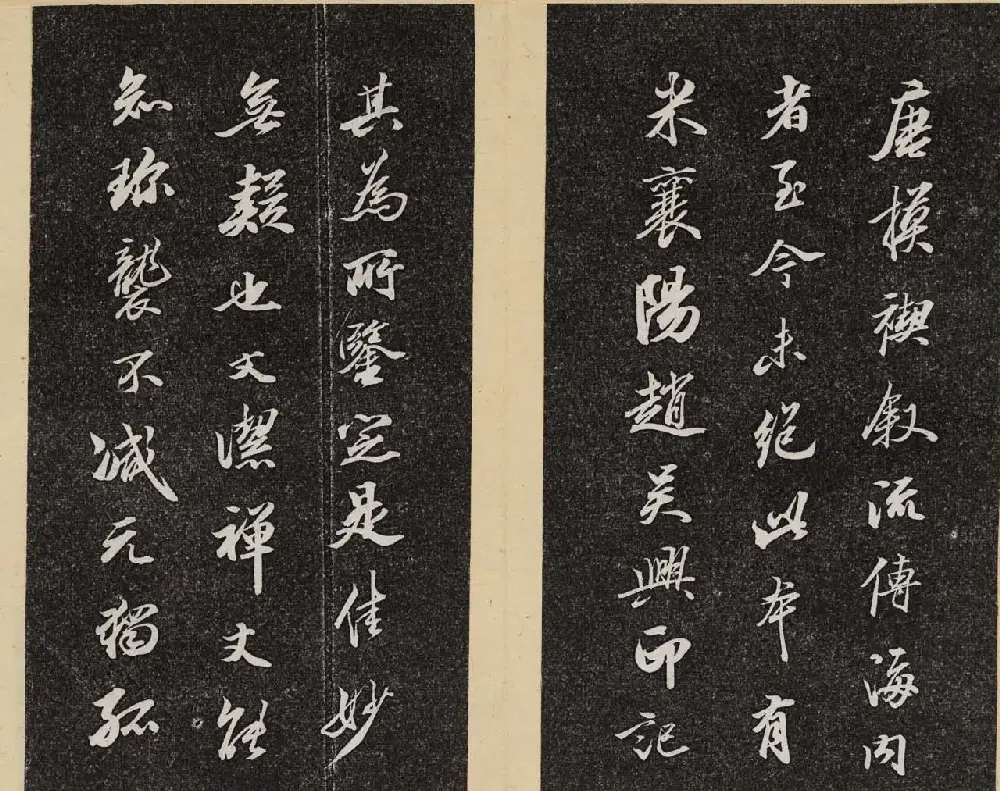 唐摸禊叙流傳海内
者至今未絶此本有
米襄陽趙吴興印記
其為所鑒定是佳妙
無疑也文潔禪丈能
知珍襲不減元獨孤